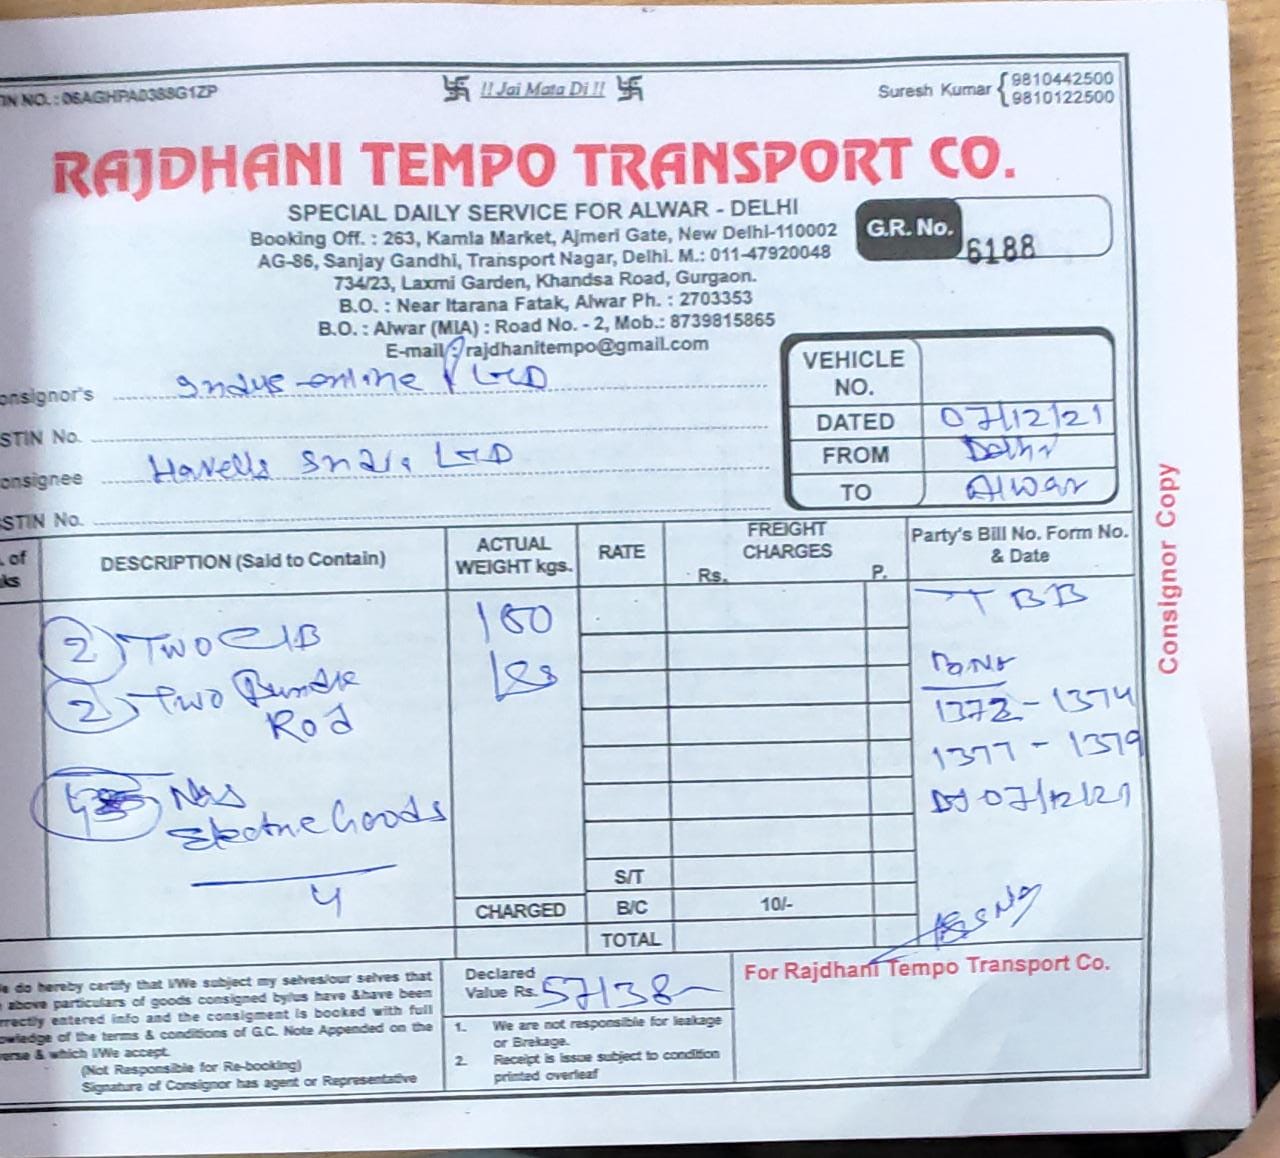 IN NO. : 06AGHPA0388G1ZP
!! Jai Mata Di !!
Suresh Kumar { 9810442500
9810122500
RAJDHANI TEMPO TRANSPORT CO.
SPECIAL DAILY SERVICE FOR ALWAR - DELHI
Booking Off. : 263, Kamla Market, Ajmeri Gate, New Delhi-110002
AG-86, Sanjay Gandhi, Transport Nagar, Delhi. M.: 011-47920048
734/23, Laxmi Garden, Khandsa Road, Gurgaon.
B.O. : Near Itarana Fatak, Alwar Ph. : 2703353
B.O. : Alwar (MIA) : Road No. - 2, Mob.: 8739815865
E-mail : rajdhanitempo@gmail.com
G.R. No. 6188
VEHICLE NO.
DATED 07/12/21
FROM Delhi
TO Alwar
onsignor's Indus online P LTD
STIN No.
onsignee Havells India LTD
STIN No.
. of
ks
DESCRIPTION (Said to Contain)
ACTUAL
WEIGHT kgs.
RATE
FREIGHT
CHARGES
Rs. P.
Party's Bill No. Form No.
& Date
2 Two C/B
2 Two Bundle
Rod
Electric Goods
4
160
TBB
1372 - 1374
1377 - 1379
Dt 07/12/21
S/T
CHARGED
B/C 10/-
TOTAL
e do hereby certify that I/We subject my selves/our selves that
above particulars of goods consigned by/us have &have been
rrectly entered info and the consigment is booked with full
owledge of the terms & conditions of G.C. Note Appended on the
verse & which I/We accept.
(Not Responsible for Re-booking)
Signature of Consignor has agent or Representative
Declared
Value Rs. 57138
1. We are not responsible for leakage
or Brekage.
2. Receipt is issue subject to condition
printed overleaf
For Rajdhani Tempo Transport Co.
Consignor Copy